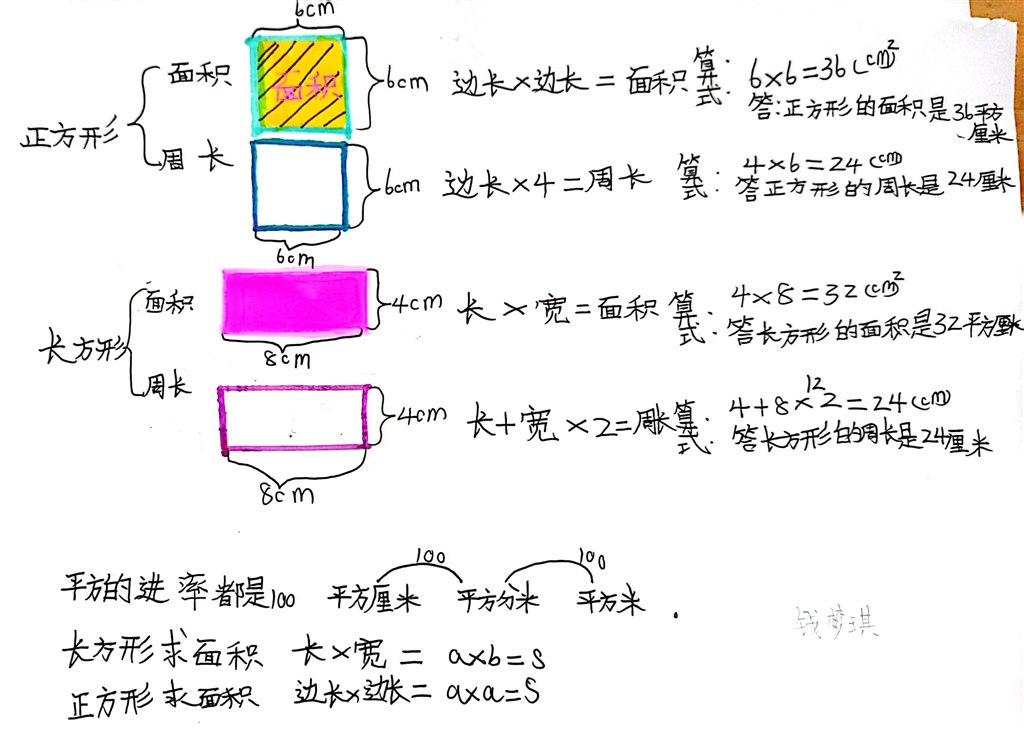 6cm
面积
面积
6cm
边长×边长=面积
算式:
6×6=36(cm²)
答:正方形的面积是36平方厘米
正方形
周长
6cm
边长×4=周长
算式:
4×6=24(cm)
答正方形的周长是24厘米
6cm
长方形
面积
4cm
长×宽=面积
算式:
4×8=32(cm²)
答长方形的面积是32平方厘米
8cm
周长
4cm
长+宽×2=周长
算式:
12
4+8×2=24(cm)
答长方形的周长是24厘米
8cm
100 100
平方的进率都是100 平方厘米 平方分米 平方米
钱梦琪
长方形求面积 长×宽= a×b=S
正方形求面积 边长×边长= a×a=S